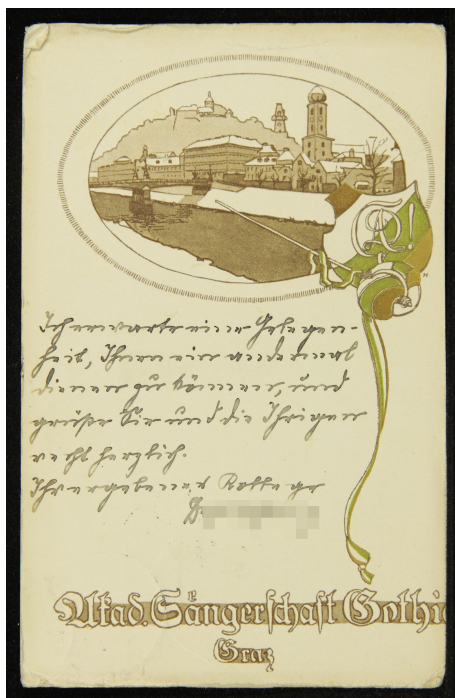 Ich erwarte eine Gelegen-
heit, Ihnen ein andermal
dienen zu können, und
grüße Sie und die Ihrigen
recht herzlich.
Ihr ergebener Kollege
Akad. Sängerschaft Gothi
Graz